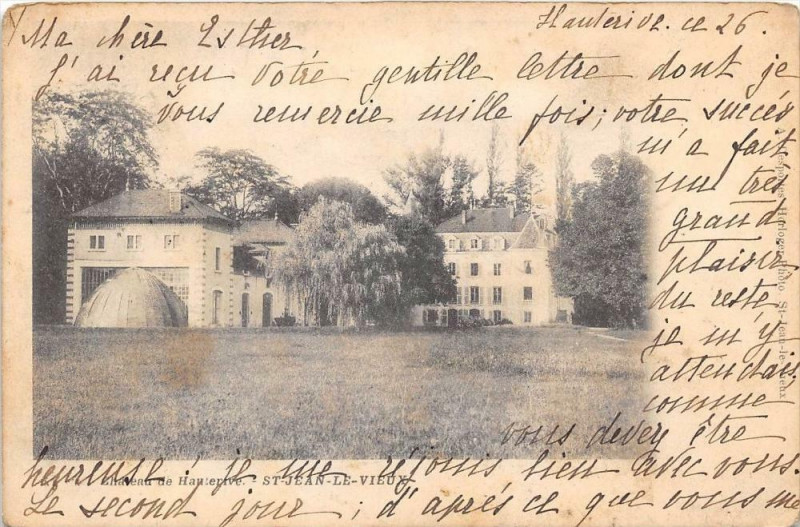 Hauterive. ce 26.
Ma chère Esther
J'ai reçu votre gentille lettre dont je
vous remercie mille fois; votre succès
m'a fait
un très
grand
plaisir
du reste
je m'y
attendais,
comme
vous devez être
heureuse; je me réjouis bien avec vous.
Le second jour; d'après ce que vous me
Château de Hauterive. - ST-JEAN-LE-VIEUX
Horloger-photo St-Jean-le-Vieux